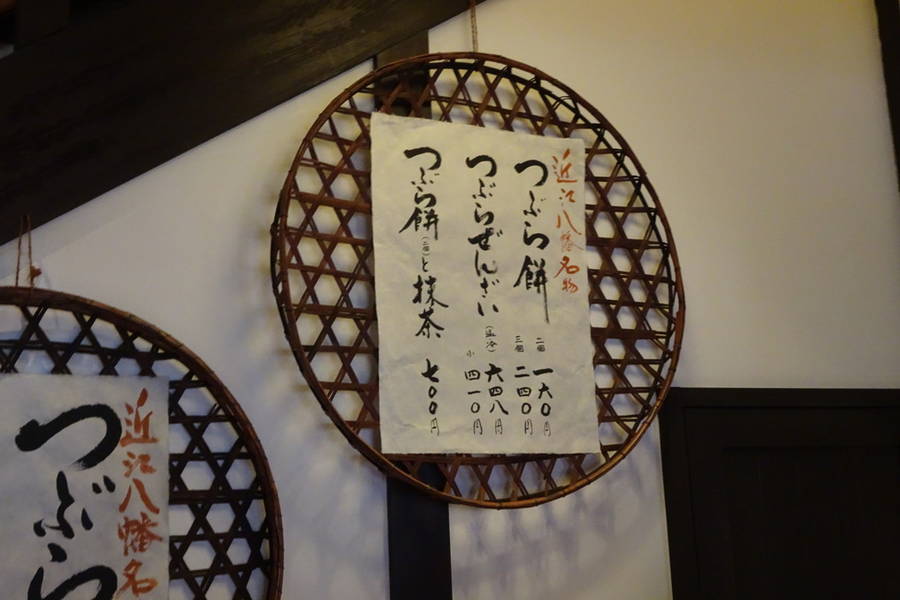 近江八幡名物
つぶら餅
二個 一六〇円
三個 二四〇円
つぶらぜんざい
六四八円
小 四一〇円
つぶら餅(二個)と抹茶 七〇〇円
近江八幡名
つぶら